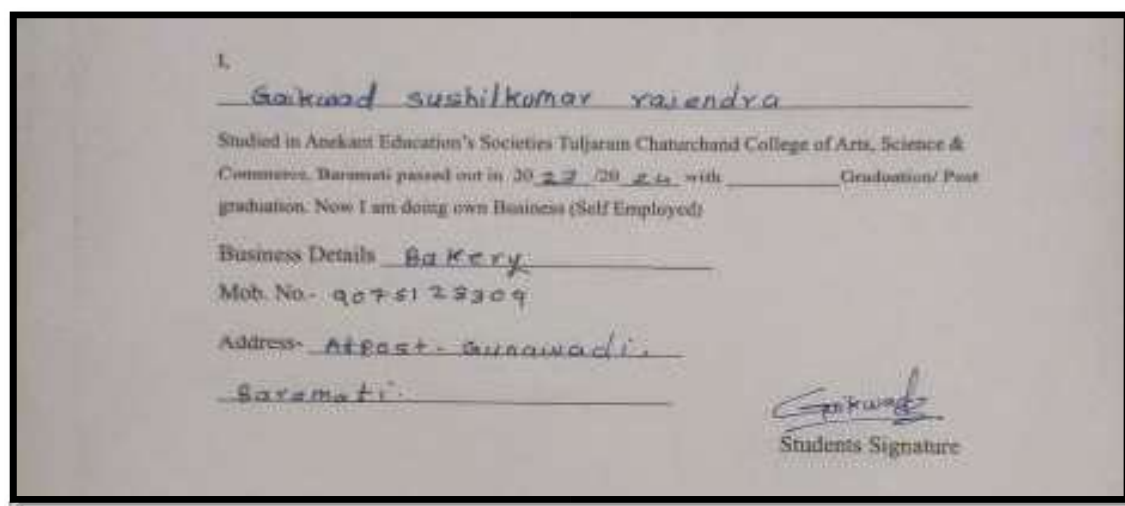 I,
Gaikwad sushilkumar rajendra
Studied in Anekant Education's Societies Tuljaram Chaturchand College of Arts, Science &
Commerce, Baramati passed out in 20 23 /20 24 with ________ Graduation/ Post
graduation. Now I am doing own Business (Self Employed)
Business Details Bakery
Mob. No.- 9075123309
Address- Atpost- Gunawadi.
Baramati.
Gaikwad
Students Signature